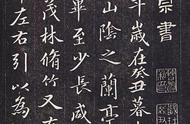 宗書
年歲在癸丑暮
山陰之蘭亭
畢至少長咸
茂林脩竹又
左右引以為